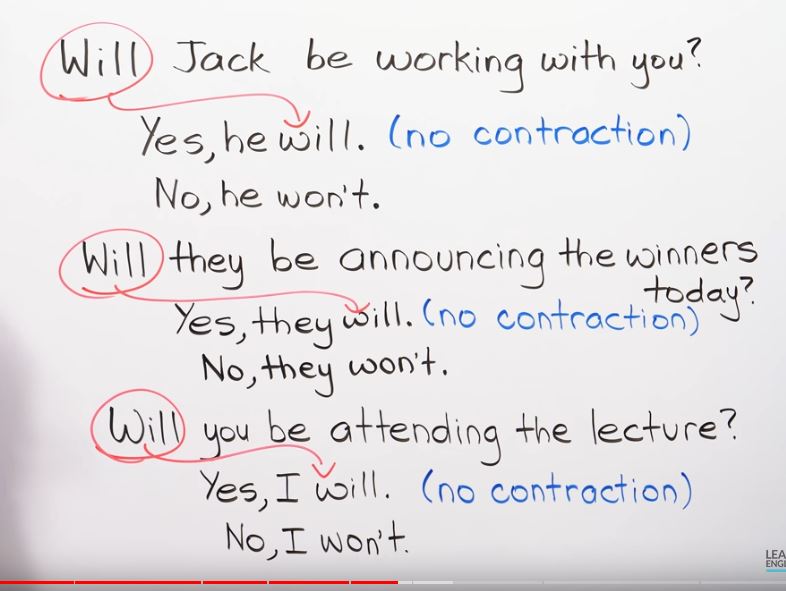 Will Jack be working with you?
Yes, he will. (no contraction)
No, he won't.
Will they be announcing the winners
today?
Yes, they will. (no contraction)
No, they won't.
Will you be attending the lecture?
Yes, I will. (no contraction)
No, I won't.